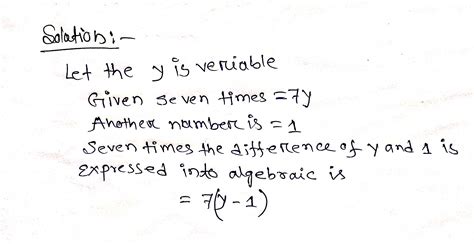 Solution:-
Let the y is veriable
Given seven times = 7y
Another number is = 1
Seven times the difference of y and 1 is
expressed into algebraic is
= 7(y-1)